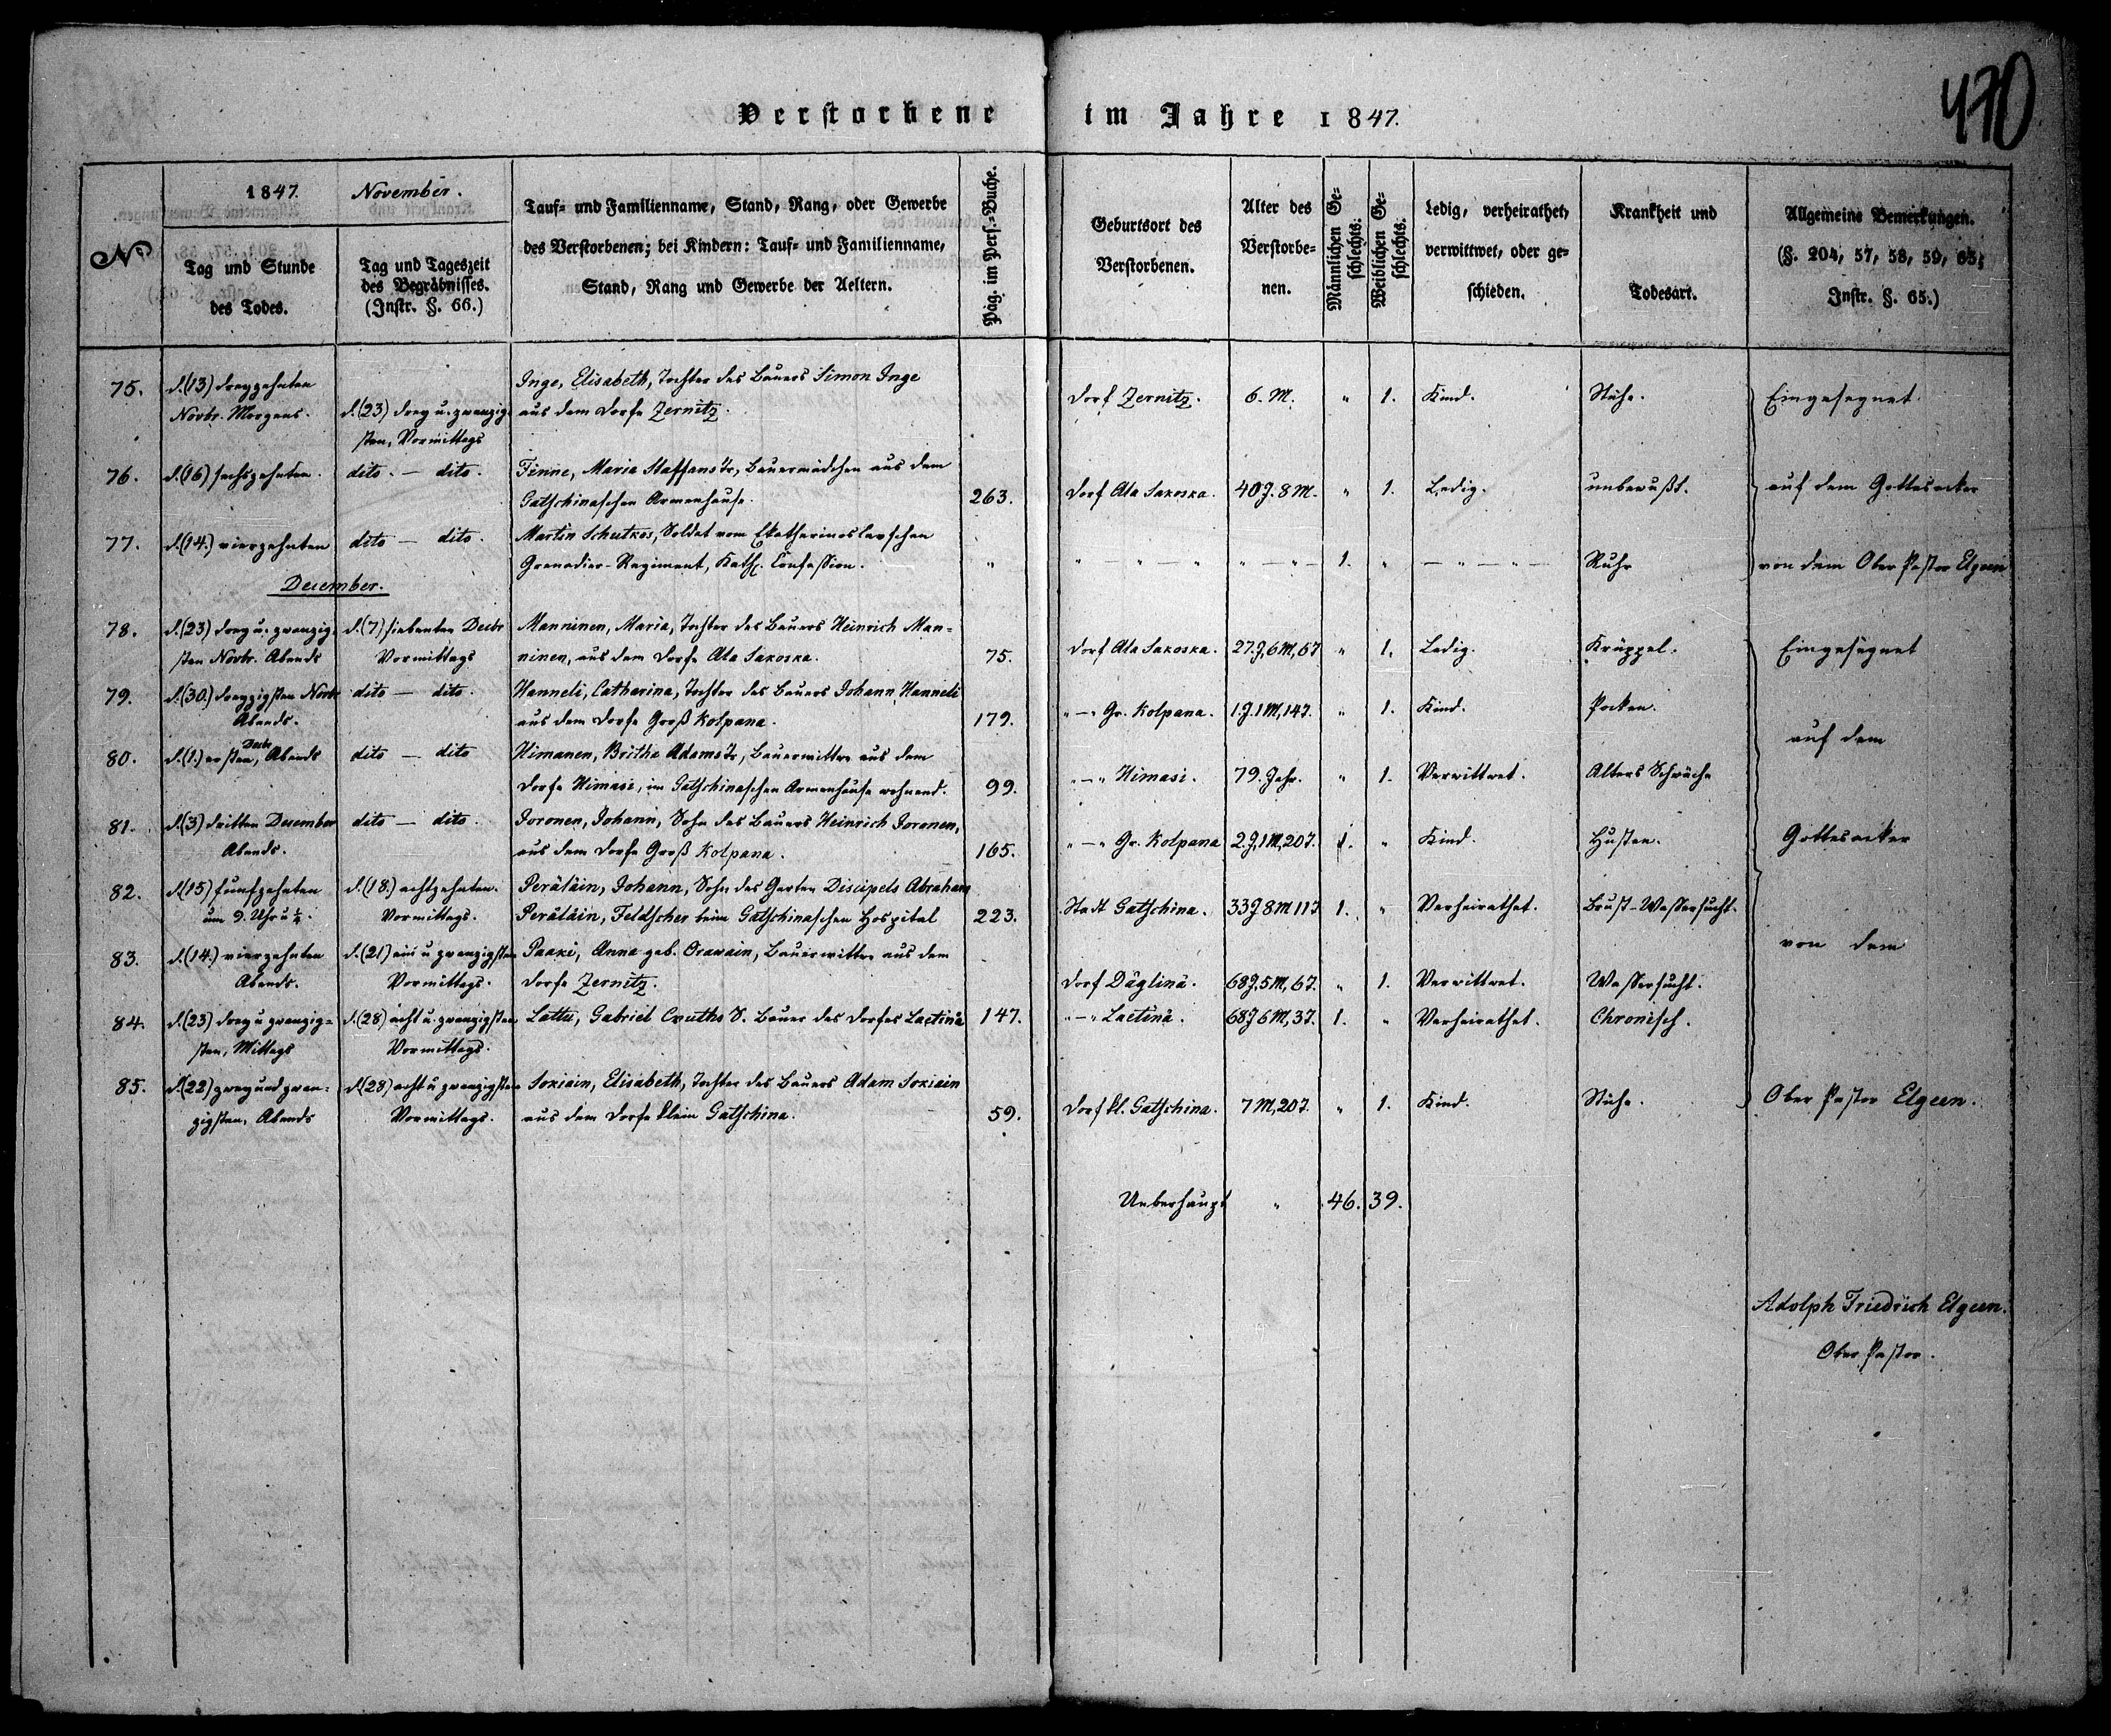 Verstorbene im Jahre 1847.
470
No
1847. November.
Tag und Stunde
des Todes.
Tag und Tageszeit
des Begräbnisses.
(Instr. §. 66.)
Tauf- und Familienname, Stand, Rang, oder Gewerbe
des Verstorbenen; bei Kindern: Tauf- und Familienname,
Stand, Rang und Gewerbe der Aeltern.
Pag. im Pers.-Buche.
Geburtsort des
Verstorbenen.
Alter des
Verstorbe-
nen.
Männlichen Ge-
schlechts.
Weiblichen Ge-
schlechts.
Ledig, verheirathet,
verwittwet, oder ge-
schieden.
Krankheit und
Todesart.
Allgemeine Bemerkungen.
(§. 204, 57, 58, 59, 65;
Instr. §. 65.)
75. d. (13) dreyzehnten Inge, Elisabeth, Tochter des Bauers Simon Inge
Novbr. Morgens. d. (23) drey u. zwanzig- aus dem Dorfe Zernitz. Dorf Zernitz. 6. M. " 1. Kind. Eingesegnet
sten, Vormittags
76. d. (16) sechszehnten. dito. — dito. Finne, Maria Staffans Tr, Bauermädchen aus dem
Gatschinaschen Armenhause. 263. Dorf Ala Saxoska. 40 J. 8 M. " 1. Ledig. unbewußt. auf dem Gottesacker
77. d. (14.) vierzehnten dito — dito. Martin Schutkos, Soldat vom Ekatherinoslawschen
Grenadier-Regiment, Kath. Confession. " " — " — " " — " — 1. " — " — " — Ruhr von dem Ober Pastor Elgeen
December.
78. d. (23) drey u. zwanzig- d. (7) siebenten Decbr Manninen, Maria, Tochter des Bauers Heinrich Man-
sten Novbr. Abends Vormittags ninen, aus dem Dorfe Ala Saxoska. 75. Dorf Ala Saxoska. 27. J, 6 M, 6 T " 1. Ledig. Krüppel. Eingesegnet
79. d. (30.) dreyzigsten Novbr dito — dito. Hanneli, Catharina, Tochter des Bauers Johann Hanneli
Abends. aus dem Dorfe Groß Kolpana. 179. " — " Gr. Kolpana. 1 J. 1 M, 14 T. " 1. Kind. Pocken.
auf dem
80. d. (1.) ersten, Decbr Abends dito — dito Himanen, Britha Adams Tr, Bauerwittwe aus dem
Dorfe Himasi, im Gatschinaschen Armenhause wohnend. 99. " — " Himasi. 79. Jahr. " 1. Verwittwet. Alters Schwäche
81. d. (3) dritten December dito — dito. Joronen, Johann, Sohn des Bauers Heinrich Joronen,
Abends. aus dem Dorfe Groß Kolpana. 165. " — " Gr. Kolpana 2 J, 1 M, 20 T. 1. " Kind. Husten. Gottesacker
82. d. (15) funfzehnten d. (18.) achtzehnten. Perätäin, Johann, Sohn des Garten Discipels Abraham
um 9. Uhr u ¼. Vormittags. Perätäin, Feldscher beim Gatschinaschen Hospital 223. Stadt Gatschina. 33 J 8 M 11 T 1. " Verheirathet. Brust-Wassersucht.
von dem
83. d. (14.) vierzehnten d. (21) ein u zwanzigsten Paaxi, Anna geb. Orawain, Bauerwittwe aus dem
Abends. Vormittags. Dorfe Zernitz. Dorf Däglinä. 68 J, 5 M, 6 T. " 1. Verwittwet. Wassersucht.
84. d. (23) drey u zwanzig- d. (28) acht u. zwanzigsten Lattu, Gabriel S. Bauer des Dorfes Laetinä 147. " — " Laetinä. 68 J 6 M, 3 T. 1. " Verheirathet. Chronisch.
sten, Mittags Vormittags.
85. d. (22) zwey und zwan- d. (28) acht u zwanzigsten Soxiain, Elisabeth, Tochter des Bauers Adam Soxiain
zigsten, Abends Vormittags. aus dem Dorfe klein Gatschina. 59. Dorf kl. Gatschina. 7 M, 20 T. " 1. Kind. Ober Pastor Elgeen.
Ueberhaupt " 46. 39.
Adolph Friedrich Elgeen.
Ober Pastor.